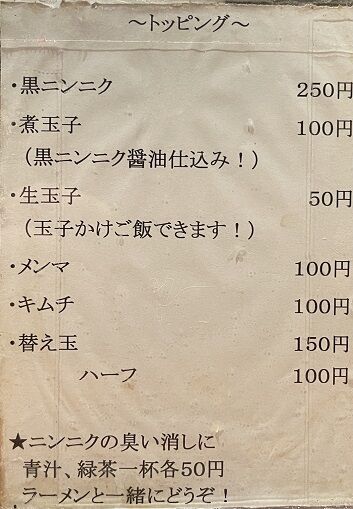 ～トッピング～
・黒ニンニク 250円
・煮玉子 100円
（黒ニンニク醤油仕込み！）
・生玉子 50円
（玉子かけご飯できます！）
・メンマ 100円
・キムチ 100円
・替え玉 150円
ハーフ 100円
★ニンニクの臭い消しに
青汁、緑茶一杯各50円
ラーメンと一緒にどうぞ！